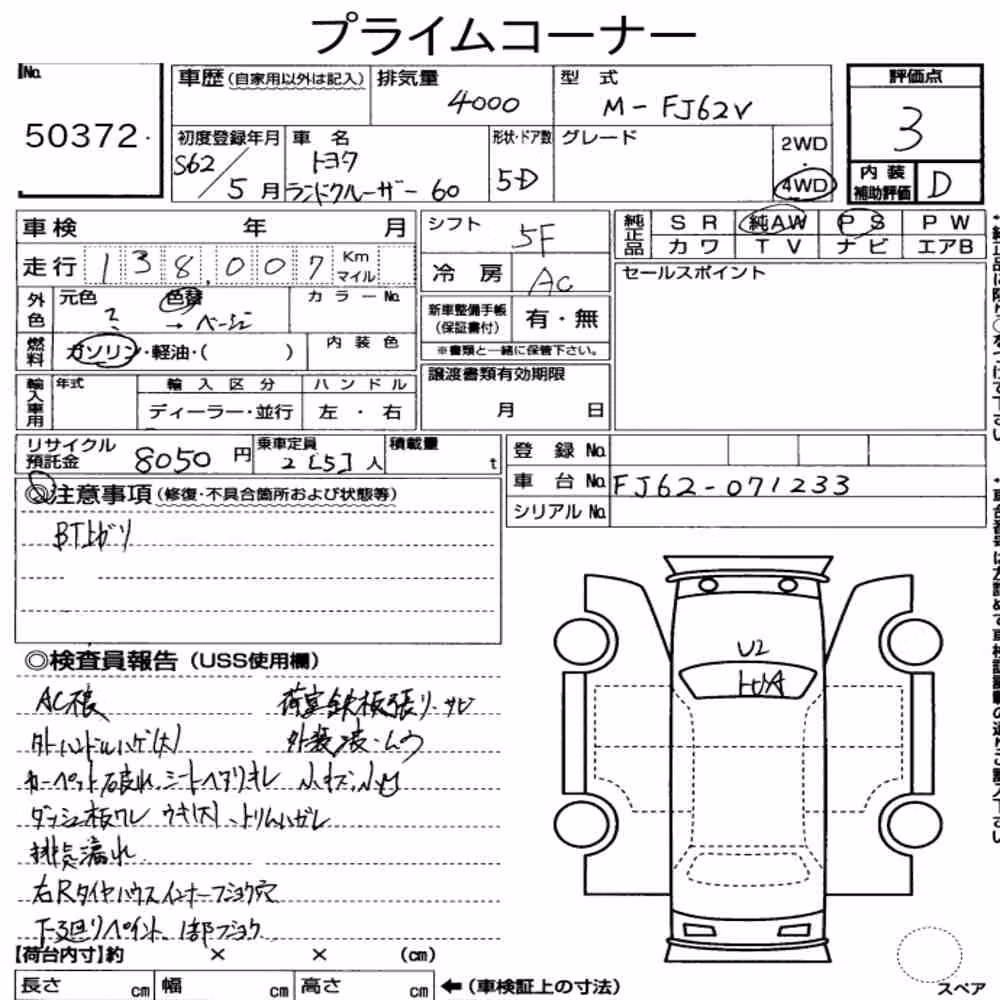 プライムコーナー
No.
50372
車歴 (自家用以外は記入)
排気量
4000
型 式
M-FJ62V
評価点
3
初度登録年月
S62/5月
車 名
トヨタ
ランドクルーザー 60
形状・ドア数
5D
グレード
2WD
・
4WD
内装
補助評価
D
車検 年 月
走行 138,007 Km
マイル
外色
元色
2
色替
→ ベージュ
カラーNo.
燃料
ガソリン・軽油・( )
内装色
輸入車用
年式
輸入区分
ディーラー・並行
ハンドル
左・右
シフト
5F
冷房
AC
新車整備手帳
(保証書付)
有・無
※書類と一緒に保管下さい。
譲渡書類有効期限
月 日
純正品
SR 純AW PS PW
カワ TV ナビ エアB
セールスポイント
リサイクル
預託金
8050 円
乗車定員
2[5]人
積載量
t
登録No.
車台No.
FJ62-071233
シリアルNo.
◎注意事項 (修復・不具合箇所および状態等)
BT上ガリ
◎検査員報告 (USS使用欄)
AC根
荷室鉄板張り、サビ
外ハンドルハゲ(大)
カーペット破れ、シートヘタリ
小キズ、小凹
ダッシュ板ワレ ウキ(大)、トリムハガレ
排気漏れ
右Rタイヤハウスインナーフショク穴
下廻りペイント、1部フショク
U2
【荷台内寸】約 × × (cm)
長さ cm 幅 cm 高さ cm
←(車検証上の寸法)
スペア